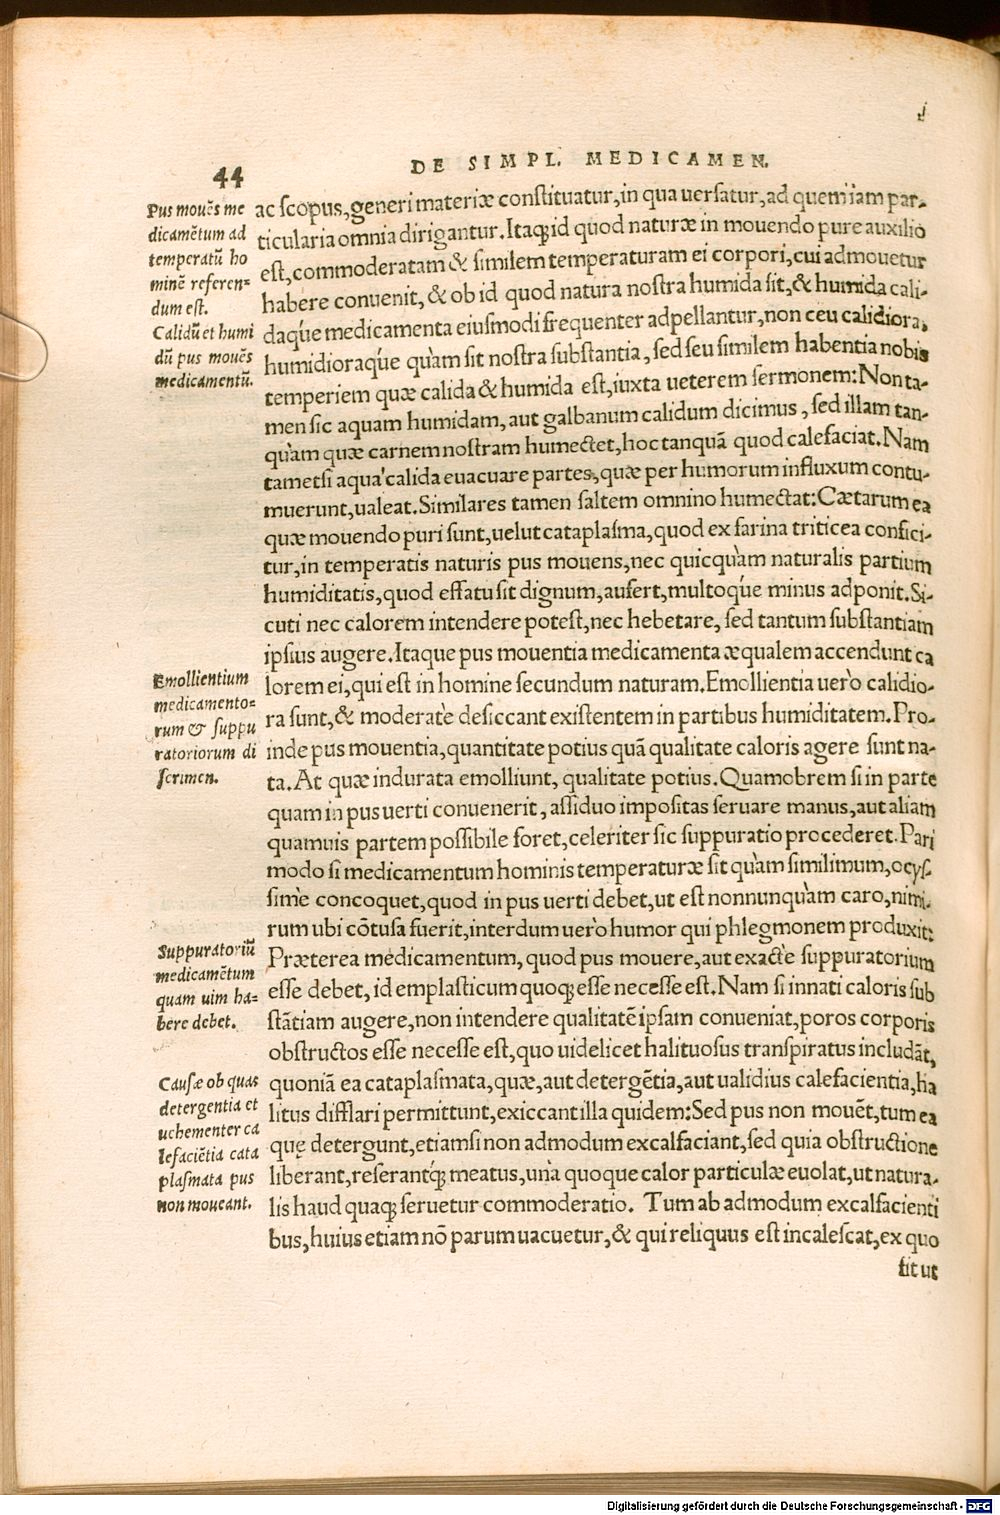 44
DE SIMPL. MEDICAMEN.
Pus mouẽs me
dicamẽtum ad
temperatũ ho
minẽ referen=
dum est.
Calidũ et humi
dũ pus mouẽs
medicamentũ.
ac scopus, generi materiæ constituatur, in qua uersatur, ad quem iam par-
ticularia omnia dirigantur. Itaqꝫ id quod naturæ in mouendo pure auxilio
est, commoderatam & similem temperaturam ei corpori, cui admouetur
habere conuenit, & ob id quod natura nostra humida sit, & humida cali-
daq́ue medicamenta eiusmodi frequenter adpellantur, non ceu calidiora,
humidioraq́ue quàm sit nostra substantia, sed seu similem habentia nobis
temperiem quæ calida & humida est, iuxta ueterem sermonem: Non ta-
men sic aquam humidam, aut galbanum calidum dicimus, sed illam tan-
quàm quæ carnem nostram humectet, hoc tanquã quod calefaciat. Nam
tametsi aqua calida euacuare partes, quæ per humorum influxum contu-
muerunt, ualeat. Similares tamen saltem omnino humectat: Cætarum ea
quæ mouendo puri sunt, uelut cataplasma, quod ex farina triticea confici-
tur, in temperatis naturis pus mouens, nec quicquàm naturalis partium
humiditatis, quod effatu sit dignum, aufert, multoq́ue minus adponit. Si-
cuti nec calorem intendere potest, nec hebetare, sed tantum substantiam
ipsius augere. Itaque pus mouentia medicamenta æqualem accendunt ca
lorem ei, qui est in homine secundum naturam. Emollientia uerò calidio-
ra sunt, & moderatè desiccant existentem in partibus humiditatem. Pro-
inde pus mouentia, quantitate potius quã qualitate caloris agere sunt na-
ta. At quæ indurata emolliunt, qualitate potius. Quamobrem si in parte
quam in pus uerti conuenerit, assiduo impositas seruare manus, aut aliam
quamuis partem possibile foret, celeriter sic suppuratio procederet. Pari
modo si medicamentum hominis temperaturæ sit quàm simillimum, ocys-
simè concoquet, quod in pus uerti debet, ut est nonnunquàm caro, nimi-
rum ubi cõtusa fuerit, interdum uerò humor qui phlegmonem produxit:
Præterea medicamentum, quod pus mouere, aut exactè suppuratorium
esse debet, id emplasticum quoqꝫ esse necesse est. Nam si innati caloris sub
stãtiam augere, non intendere qualitatẽ ipsam conueniat, poros corporis
obstructos esse necesse est, quo uidelicet halituosus transpiratus includãt,
quoniã ea cataplasmata, quæ, aut detergẽtia, aut ualidius calefacientia, ha
litus difflari permittunt, exiccant illa quidem: Sed pus non mouẽt, tum ea
quę detergunt, etiamsi non admodum excalfaciant, sed quia obstructione
liberant, reserantq́ꝫ meatus, unà quoque calor particulæ euolat, ut natura-
lis haud quaqꝫ seruetur commoderatio. Tum ab admodum excalfacienti
bus, huius etiam nõ parum uacuetur, & qui reliquus est incalescat, ex quo
fit ut
Emollientium
medicamento=
rum & suppu
ratoriorum di
scrimen.
Suppuratoriũ
medicamẽtum
quam uim ha=
bere debet.
Causæ ob quas
detergentia et
uehementer ca
lefaciẽtia cata
plasmata pus
non moueant.
Digitalisierung gefördert durch die Deutsche Forschungsgemeinschaft - DFG